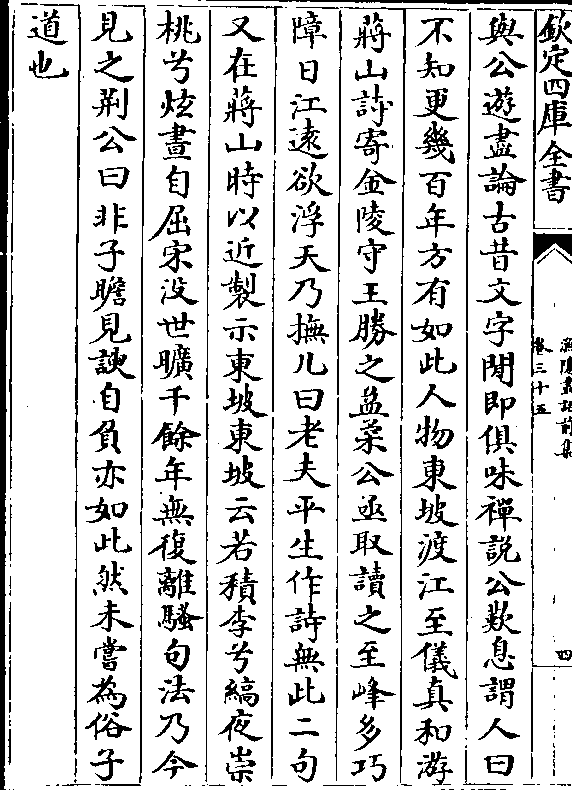 欽定四庫全書
漁隱叢話前集
卷三十五
四
與公遊盡論古昔文字閒即俱味禪説公歎息謂人曰
不知更幾百年方有如此人物東坡渡江至儀真和游
蔣山詩寄金陵守王勝之益柔公亟取讀之至峰多巧
障日江逺欲浮天乃撫几曰老夫平生作詩無此二句
又在蔣山時以近製示東坡東坡云若積李兮縞夜崇
桃兮炫晝自屈宋没世曠千餘年無復離騷句法乃今
見之荆公曰非子瞻見諛自負亦如此然未嘗為俗子
道也